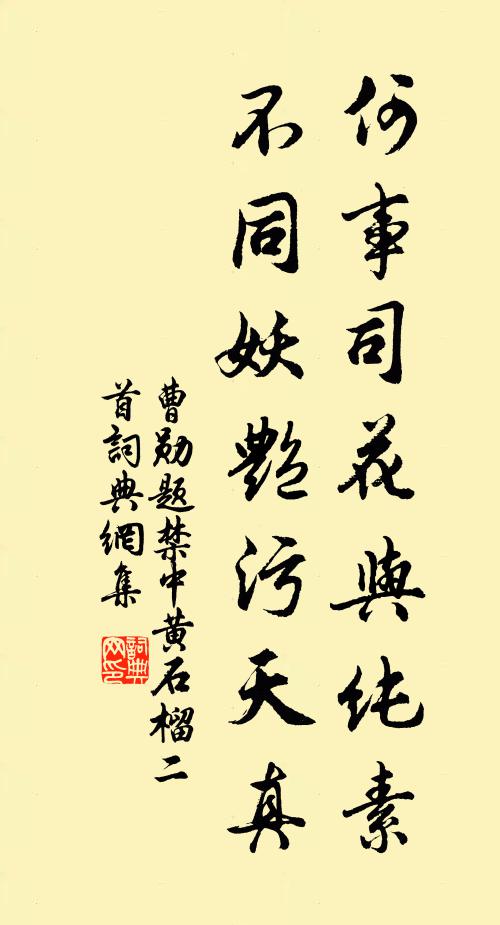 何事司花與纯素
不同妖艷污天真
曹勛题禁中黄石榴二
首詞典網集
詞典網印